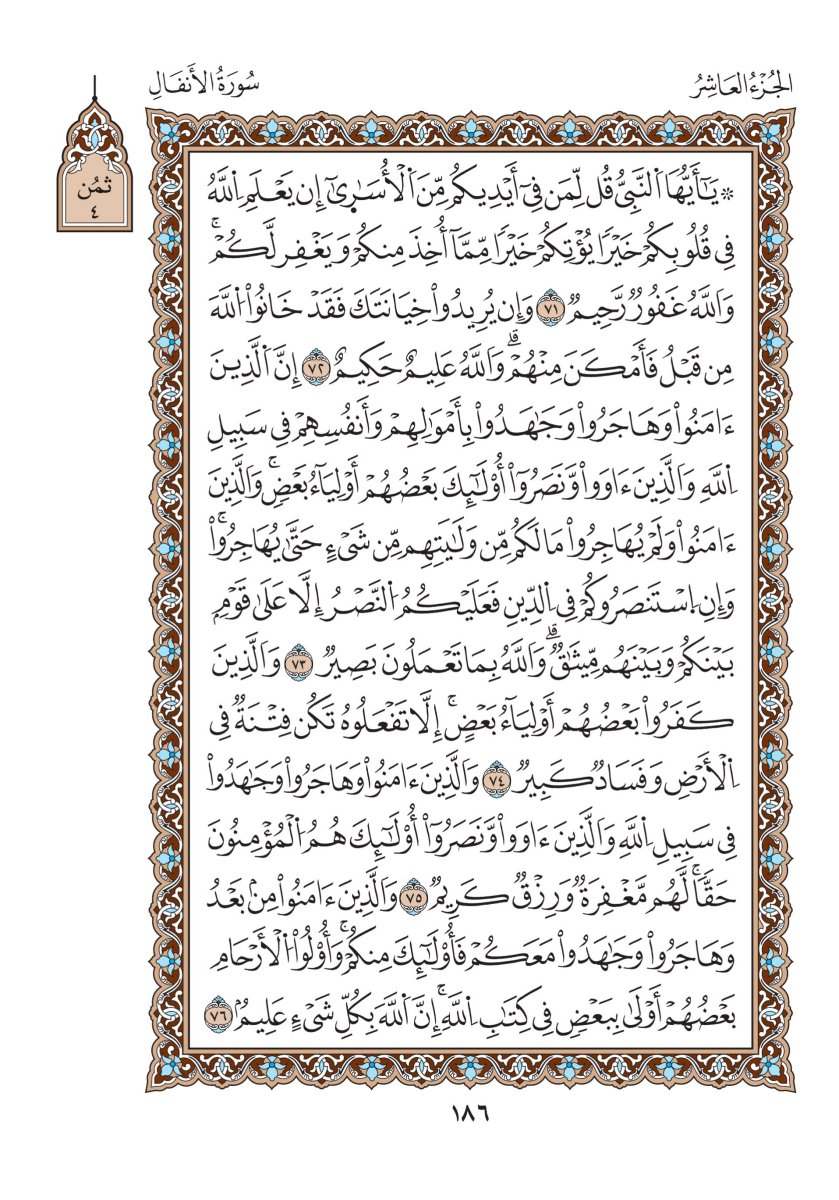 الجُزْءُ العَاشِرُ
سُورَةُ الأَنفَالِ
ثمُن
٤
۞ يَـٰٓأَيُّهَا اَ۬لنَّبِيُّ قُل لِّمَن فِيٓ أَيْدِيكُم مِّنَ اَ۬لْأُسَـٰر۪ىٰٓ إِن يَعْلَمِ اِ۬للَّهُ
فِي قُلُوبِكُمْ خَيْرًا يُؤْتِكُمْ خَيْرًا مِّمَّآ أُخِذَ مِنكُمْ وَيَغْفِر لَّكُمْۚ
وَاَللَّهُ غَفُورٌ رَّحِيمٌ ٧١ وَإِن يُرِيدُواْ خِيَانَتَكَ فَقَدْ خَانُواْ اُ۬للَّهَ
مِن قَبْلُ فَأَمْكَنَ مِنْهُمْۗ وَاَللَّهُ عَلِيمٌ حَكِيمٌ ٧٢ إِنَّ اَ۬لَّذِينَ
ءَامَنُواْ وَهَاجَرُواْ وَجَـٰهَدُواْ بِأَمْوَٰلِهِمْ وَأَنفُسِهِمْ فِي سَبِيلِ
اِ۬للَّهِ وَاَلَّذِينَ ءَاوَواْ وَّنَصَرُوٓاْ أُوْلَـٰٓئِكَ بَعْضُهُمْ أَوْلِيَآءُ بَعْضٖۚ وَاَلَّذِينَ
ءَامَنُواْ وَلَمْ يُهَاجِرُواْ مَا لَكُم مِّن وَلَـٰيَتِهِم مِّن شَيْءٍ حَتَّىٰ يُهَاجِرُواْۚ
وَإِنِ اِ۪سْتَنصَرُوكُمْ فِي اِ۬لدِّينِ فَعَلَيْكُمُ اُ۬لنَّصْرُ إِلَّا عَلَىٰ قَوْمِۭ
بَيْنَكُمْ وَبَيْنَهُم مِّيثَـٰقٌۗ وَاَللَّهُ بِمَا تَعْمَلُونَ بَصِيرٌ ٧٣ وَاَلَّذِينَ
كَفَرُواْ بَعْضُهُمْ أَوْلِيَآءُ بَعْضٍۚ إِلَّا تَفْعَلُوهُ تَكُن فِتْنَةٌ فِي
اِ۬لْأَرْضِ وَفَسَادٌ كَبِيرٌ ٧٤ وَاَلَّذِينَ ءَامَنُواْ وَهَاجَرُواْ وَجَـٰهَدُواْ
فِي سَبِيلِ اِ۬للَّهِ وَاَلَّذِينَ ءَاوَواْ وَّنَصَرُوٓاْ أُوْلَـٰٓئِكَ هُمُ اُ۬لْمُؤْمِنُونَ
حَقًّاۚ لَّهُم مَّغْفِرَةٌ وَرِزْقٌ كَرِيمٌ ٧٥ وَاَلَّذِينَ ءَامَنُواْ مِنۢ بَعْدُ
وَهَاجَرُواْ وَجَـٰهَدُواْ مَعَكُمْ فَأُوْلَـٰٓئِكَ مِنكُمْۚ وَأُوْلُواْ اُ۬لْأَرْحَامِ
بَعْضُهُمْ أَوْلَىٰ بِبَعْضٖ فِي كِتَـٰبِ اِ۬للَّهِۚ إِنَّ اَ۬للَّهَ بِكُلِّ شَيْءٍ عَلِيمُۢ ٧٦
١٨٦